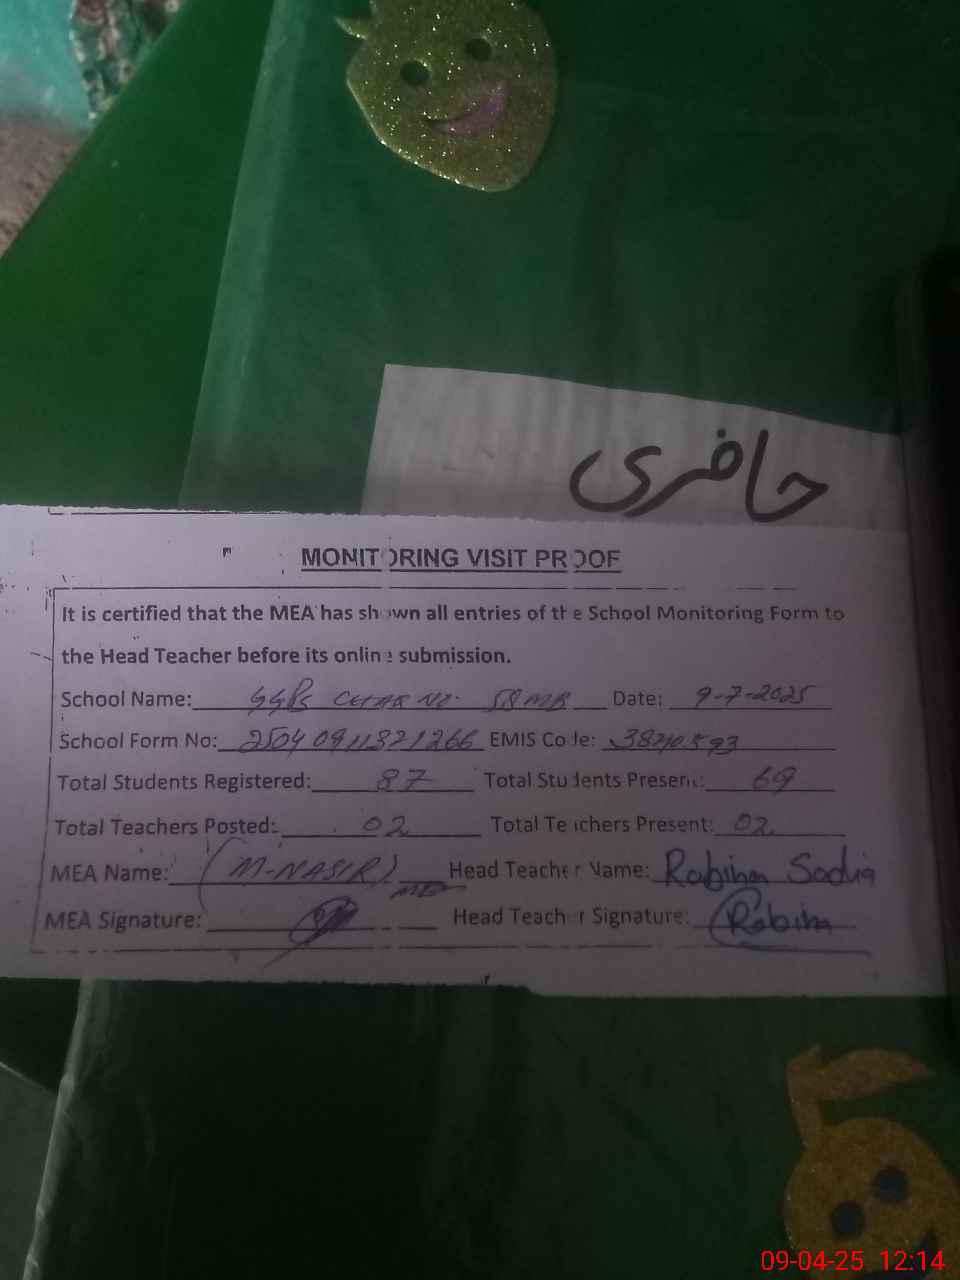 حاضری
MONITORING VISIT PROOF
It is certified that the MEA has shown all entries of the School Monitoring Form to
the Head Teacher before its online submission.
School Name: GGPS CHAK NO. 58 MB Date: 9-7-2025
School Form No: 2504 0911321266 EMIS Code: 38210593
Total Students Registered: 87 Total Students Present: 69
Total Teachers Posted: 02 Total Teachers Present: 02
MEA Name: (M-NASIR) Head Teacher Name: Rabiha Sadia
MEA Signature: Head Teacher Signature: Rabiha
09-04-25 12:14